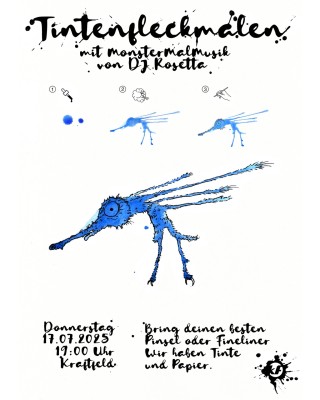 Tintenfleckmalen
mit Monstermalmusik
von DJ Rosetta
1 2 3
Donnerstag
17.07.2025
19:00 Uhr
Kraftfeld
Bring deinen besten
Pinsel oder Fineliner
Wir haben Tinte
und Papier.